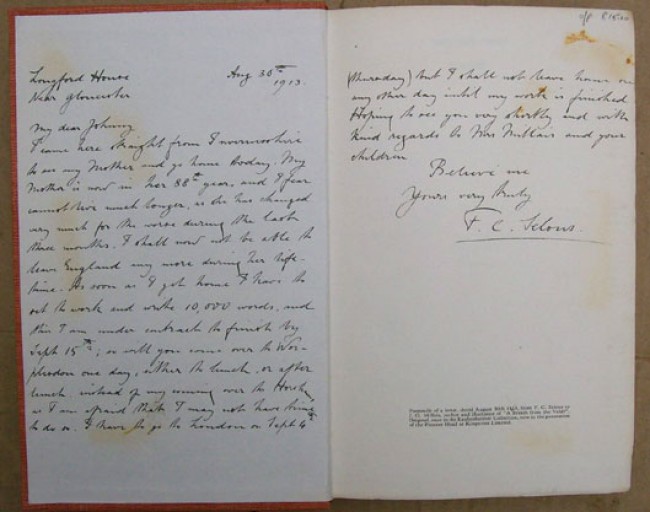 Longford House
Near Gloucester
Aug 30th
1913.
My dear Johnny
I came here straight from Invernesshire
to see my Mother and go home today. My
Mother is now in her 88th year, and I fear
cannot live much longer, as she has changed
very much for the worse during the last
three months. I shall now not be able to
leave England any more during her life-
time. As soon as I get home I have to
set to work and write 10,000 words, and
this I am under contract to finish by
Sept 15th; so will you come over to Wor-
plesdon one day, either to lunch, or after
lunch, instead of my coming over to Horsham
as I am afraid that I may not have time
to do so. I have to go to London on Sept 4th
(Thursday) but I shall not leave home on
any other day until my work is finished
Hoping to see you very shortly and with
kind regards to Mrs Millais and your
children
Believe me
Yours very truly
F. C. Selous.
Facsimile of a letter, dated August 30th 1913, from F. C. Selous to
J. G. Millais, author and illustrator of "A Breath from the Veldt".